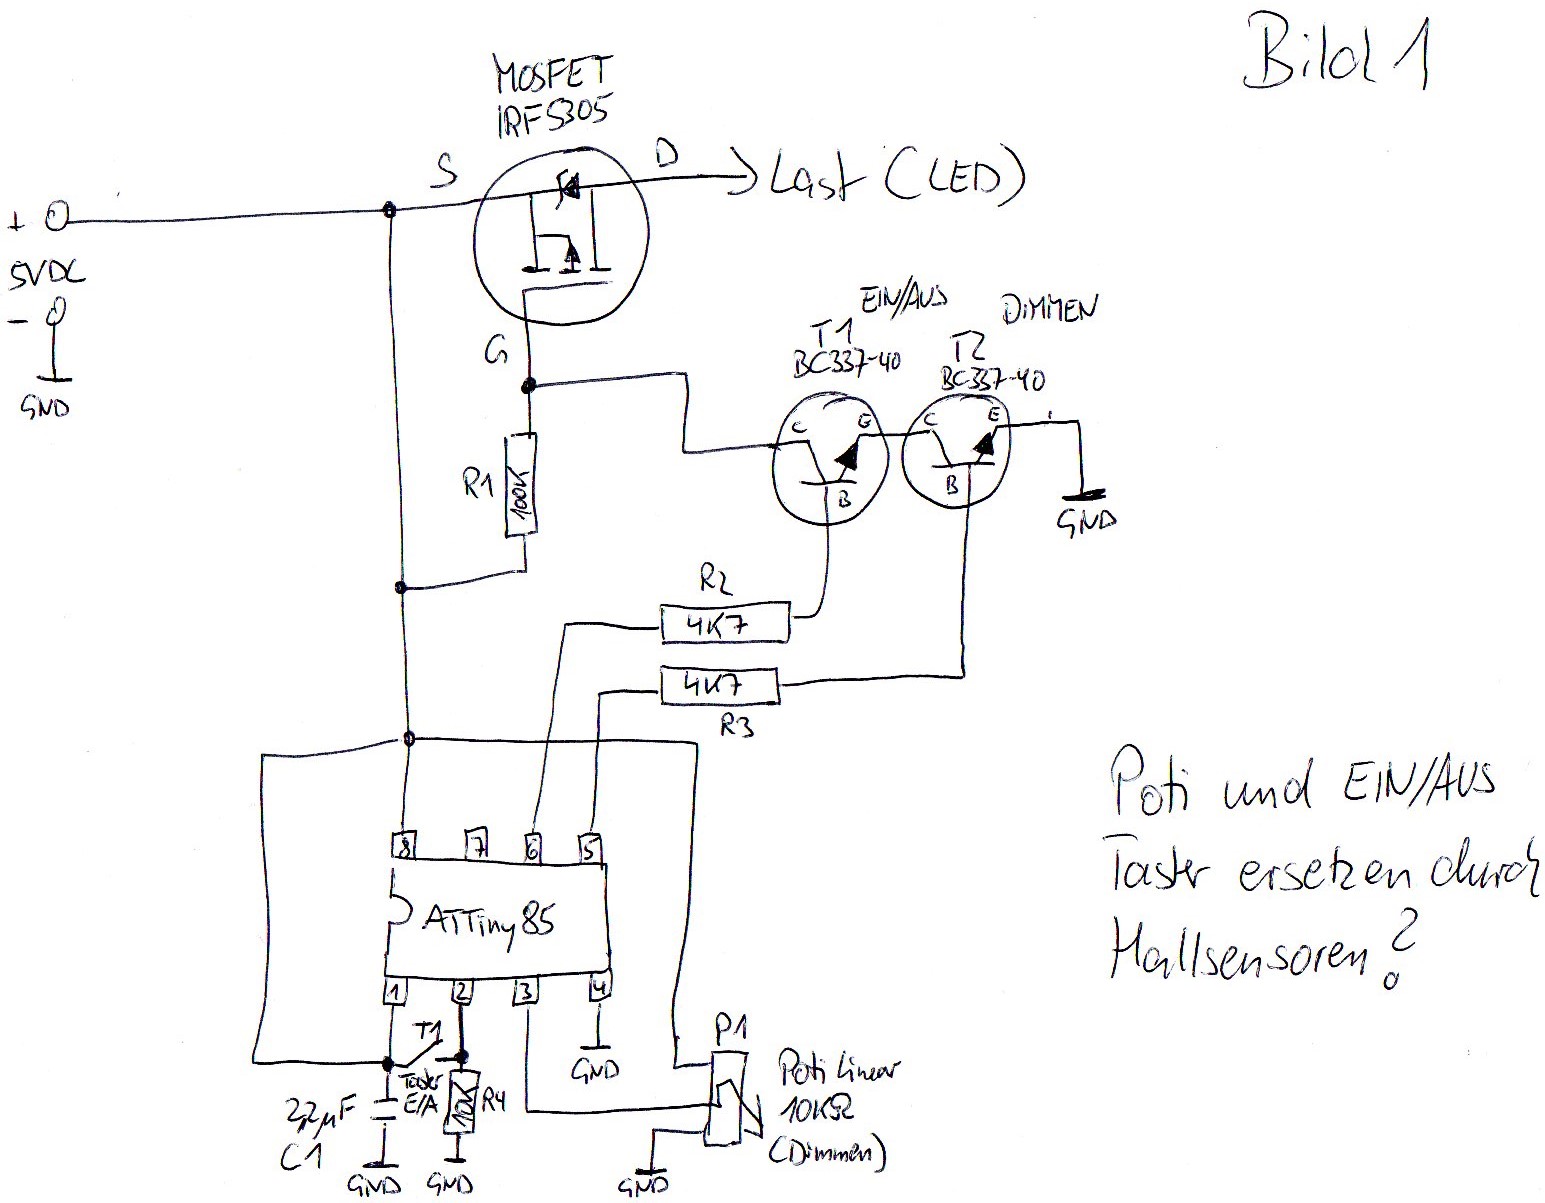 Bild 1
MOSFET
IRF5305
S
D
Last (LED)
+
5VDC
-
GND
G
EIN/AUS
T1
BC337-40
DIMMEN
T2
BC337-40
C
E
B
C
E
B
GND
R1
100K
R2
4K7
4K7
R3
8
7
6
5
ATTiny85
1
2
3
4
T1
Taster
E/A
GND
2,2µF
C1
GND
10K
R4
GND
P1
Poti Linear
10KΩ
(Dimmen)
GND
Poti und EIN/AUS
Taster ersetzen durch
Hallsensoren?